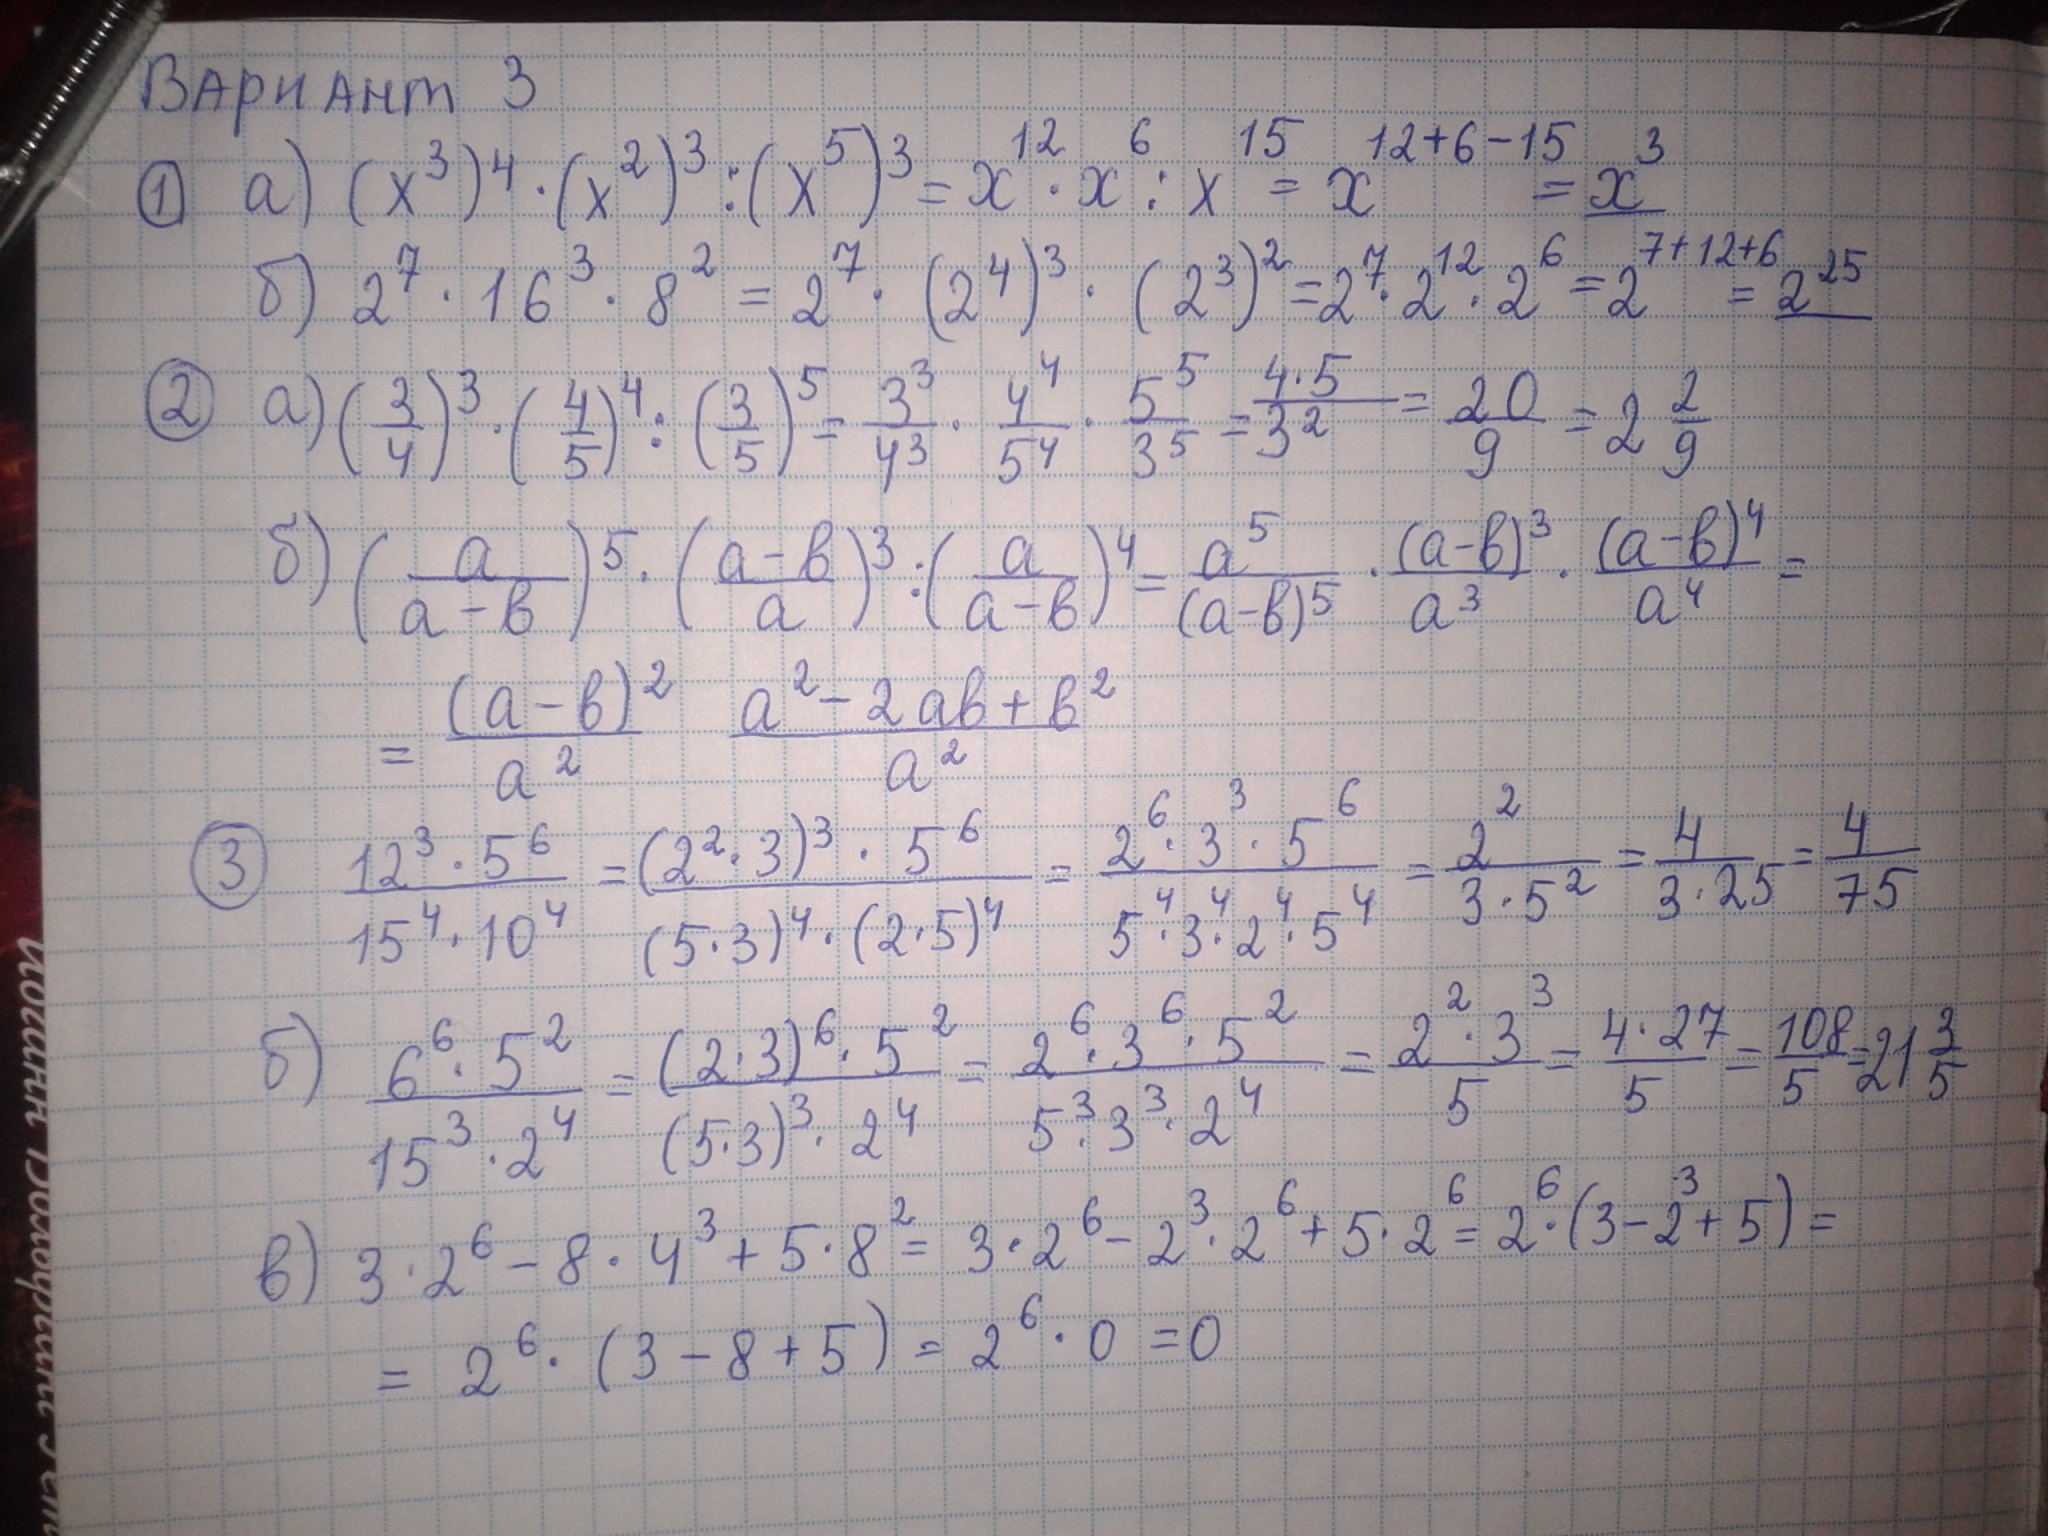 Вариант 3
① а) (x³)⁴ · (x²)³ : (x⁵)³ = x¹² · x⁶ : x¹⁵ = x¹²⁺⁶⁻¹⁵ = x³
б) 2⁷ · 16³ · 8² = 2⁷ · (2⁴)³ · (2³)² = 2⁷ · 2¹² · 2⁶ = 2⁷⁺¹²⁺⁶ = 2²⁵
② а) (3/4)³ · (4/5)⁴ : (3/5)⁵ = 3³/4³ · 4⁴/5⁴ · 5⁵/3⁵ = 4·5/3² = 20/9 = 2 2/9
б) (a/(a-b))⁵ · ((a-b)/a)³ : (a/(a-b))⁴ = a⁵/(a-b)⁵ · (a-b)³/a³ · (a-b)⁴/a⁴ =
= (a-b)²/a² (a²-2ab+b²)/a²
③ (12³ · 5⁶)/(15⁴ · 10⁴) = ((2²·3)³ · 5⁶)/((5·3)⁴ · (2·5)⁴) = (2⁶ · 3³ · 5⁶)/(5⁴ · 3⁴ · 2⁴ · 5⁴) = 2²/(3·5²) = 4/(3·25) = 4/75
б) (6⁶ · 5²)/(15³ · 2⁴) = ((2·3)⁶ · 5²)/((5·3)³ · 2⁴) = (2⁶ · 3⁶ · 5²)/(5³ · 3³ · 2⁴) = (2² · 3³)/5 = (4·27)/5 = 108/5 = 21 3/5
в) 3 · 2⁶ - 8 · 4³ + 5 · 8² = 3 · 2⁶ - 2³ · 2⁶ + 5 · 2⁶ = 2⁶ · (3 - 2³ + 5) =
= 2⁶ · (3 - 8 + 5) = 2⁶ · 0 = 0